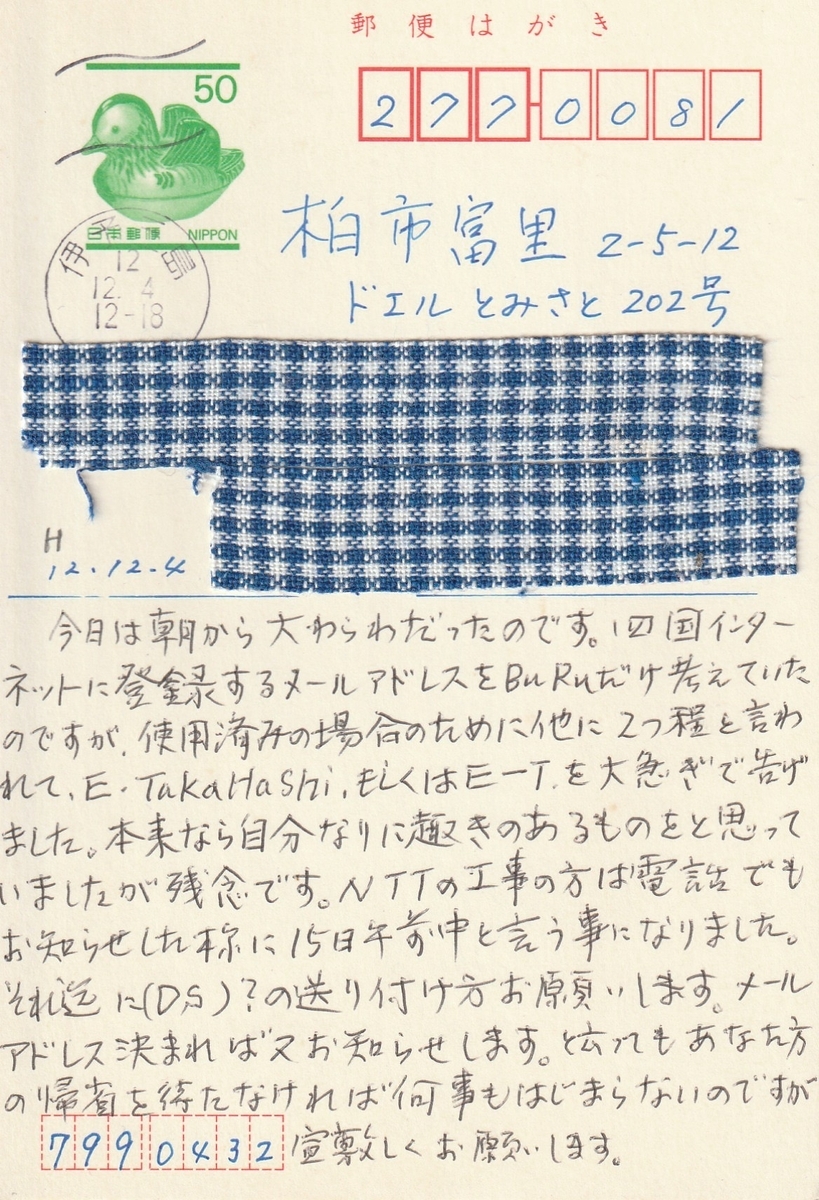 郵便はがき
50
日本郵便 NIPPON
277-0081
伊予 島
12
12. 4
12-18
柏市富里 2-5-12
ドエルとみさと 202号
H
12.12.4
今日は朝から大わらわだったのです。四国インター
ネットに登録するメールアドレスをBuRuだけ考えていた
のですが、使用済みの場合のために他に2つ程と言わ
れて、E・TakaHaShi、もしくはE-T.を大急ぎで告げ
ました。本来なら自分なりに趣きのあるものをと思って
いましたが残念です。NTTの工事の方は電話でも
お知らせした様に15日午前中と言う事になりました。
それ迄に(DS)?の送り付け方お願いします。メール
アドレス決まれば又お知らせします。と云ってもあなた方
の帰省を待たなければ何事もはじまらないのですが
7990432 宜敷しくお願いします。